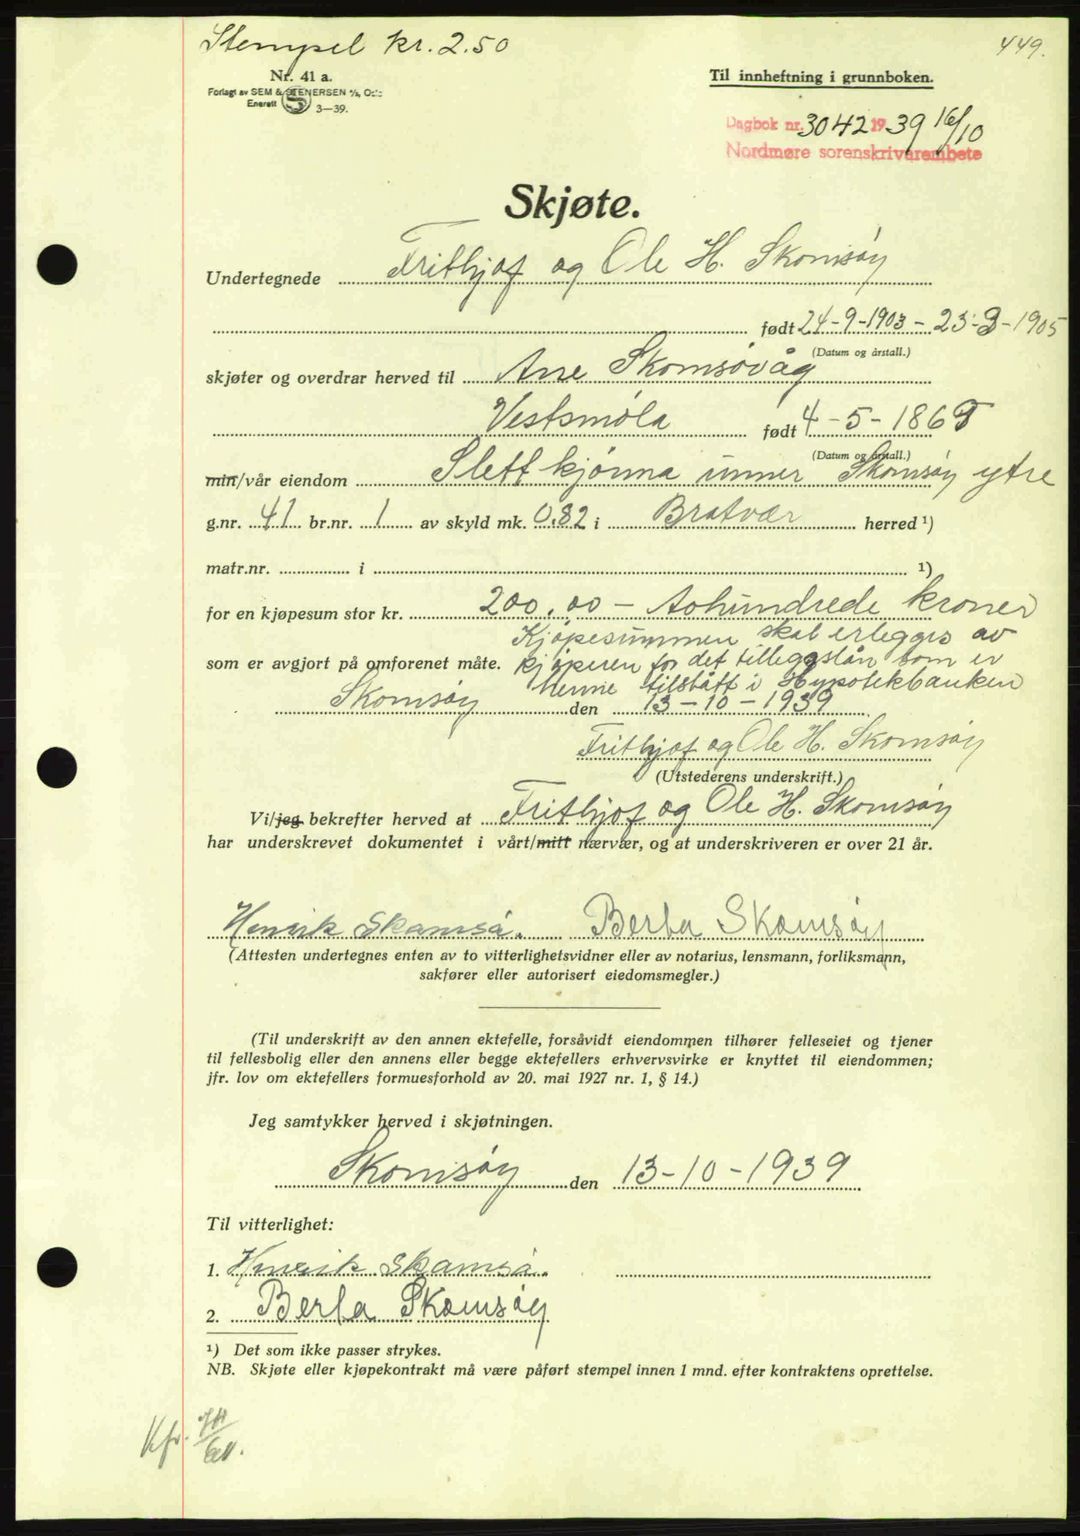 Stempel kr. 2.50
449.
Nr. 41 a.
Forlagt av SEM & STENERSEN A/S, Oslo
Enerett
3—39.
Til innheftning i grunnboken.
Dagbok nr. 3042 1939 16/10
Nordmøre sorenskriverembete
Skjøte.
Undertegnede Frithjof og Ole H. Skomsøy
født 24-9-1903 - 23-3-1905
(Datum og årstall.)
skjøter og overdrar herved til Ane Skomsøvåg
Vestsmøla født 4-5-1869
(Datum og årstall.)
min/vår eiendom Slettkjønna unner Skomsøy ytre
g.nr. 41 br.nr. 1 av skyld mk. 0.82 i Bratvær herred ¹)
matr.nr. i ¹)
for en kjøpesum stor kr. 200,00 – Tohundrede kroner
Kjøpesummen skal erlegges av
som er avgjort på omforenet måte. kjøperen for det tilleggslån som er
henne tilstått i Hypotekbanken
Skomsøy den 13-10-1939
Frithjof og Ole H. Skomsøy
(Utstederens underskrift.)
Vi/jeg bekrefter herved at Frithjof og Ole H. Skomsøy
har underskrevet dokumentet i vårt/mitt nærvær, og at underskriveren er over 21 år.
Henrik Skamsø. Berta Skomsøy
(Attesten undertegnes enten av to vitterlighetsvidner eller av notarius, lensmann, forliksmann,
sakfører eller autorisert eiedomsmegler.)
(Til underskrift av den annen ektefelle, forsåvidt eiendommen tilhører felleseiet og tjener
til fellesbolig eller den annens eller begge ektefellers erhvervsvirke er knyttet til eiendommen;
jfr. lov om ektefellers formuesforhold av 20. mai 1927 nr. 1, § 14.)
Jeg samtykker herved i skjøtningen.
Skomsøy den 13-10-1939
Til vitterlighet:
1. Henrik Skamsø.
2. Berta Skomsøy
¹) Det som ikke passer strykes.
NB. Skjøte eller kjøpekontrakt må være påført stempel innen 1 mnd. efter kontraktens oprettelse.
Kfr.